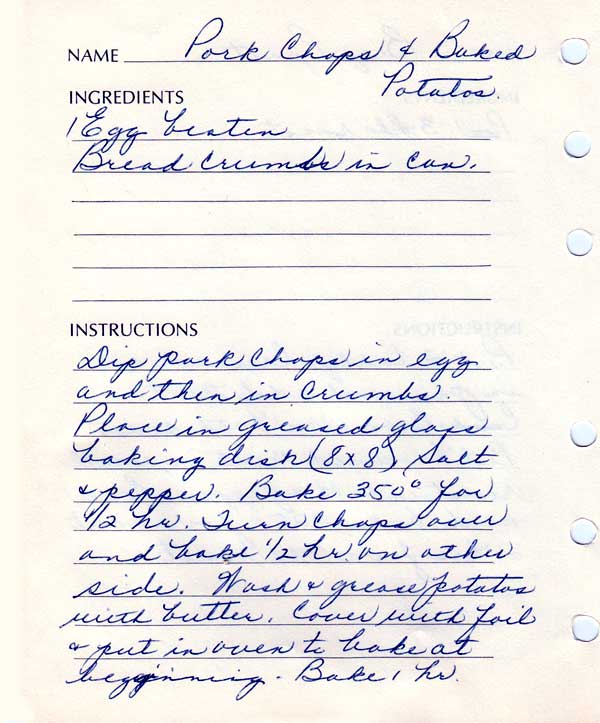 NAME Pork Chops & Baked
Potatos.
INGREDIENTS
1 Egg beaten
Bread crumbs in can.
INSTRUCTIONS
Dip pork chops in egg
and then in crumbs.
Place in greased glass
baking dish (8x8) Salt
& pepper. Bake 350° for
1/2 hr. Turn chops over
and bake 1/2 hr. on other
side. Wash & grease potatos
with butter. Cover with foil
& put in oven to bake at
begginning - Bake 1 hr.